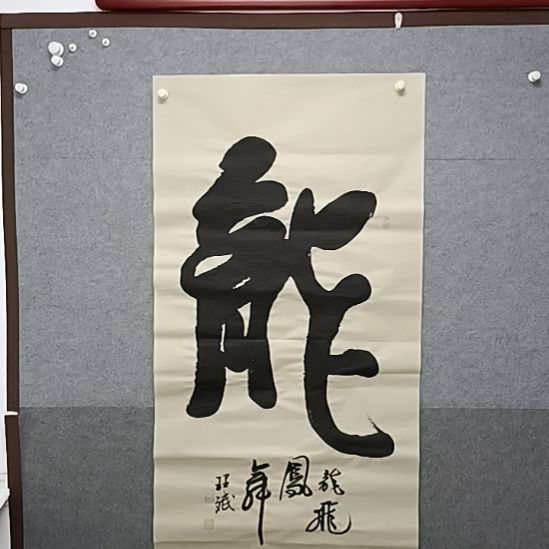 龍
龍飛
鳳
舞